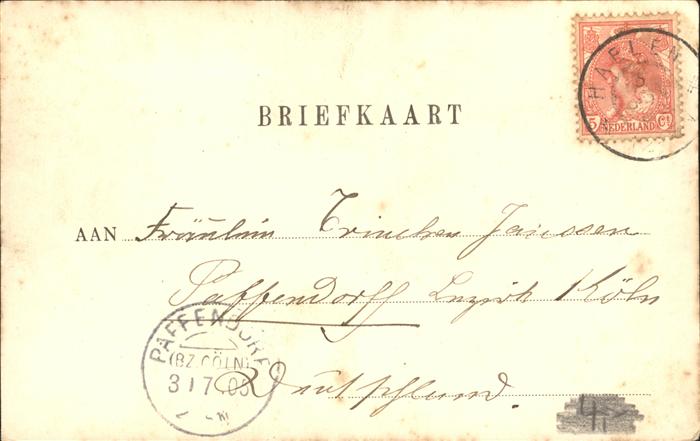 HAELEN
5 NEDERLAND Ct
BRIEFKAART
AAN Fräulein Trinchen Janssen
Paffendorff Bezirk Köln
Deutschland.
PAFFENDORF
(BZ. CÖLN)
31 7
4,-